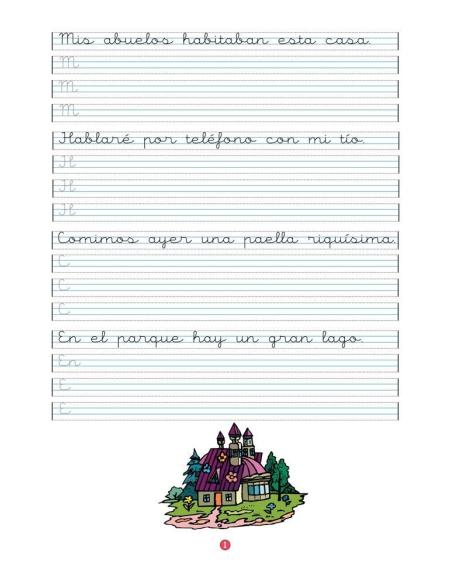 Mis abuelos habitaban esta casa.
M
M
M
Hablaré por teléfono con mi tío.
H
H
H
Comimos ayer una paella riquísima.
C
C
C
En el parque hay un gran lago.
En
E
E
1